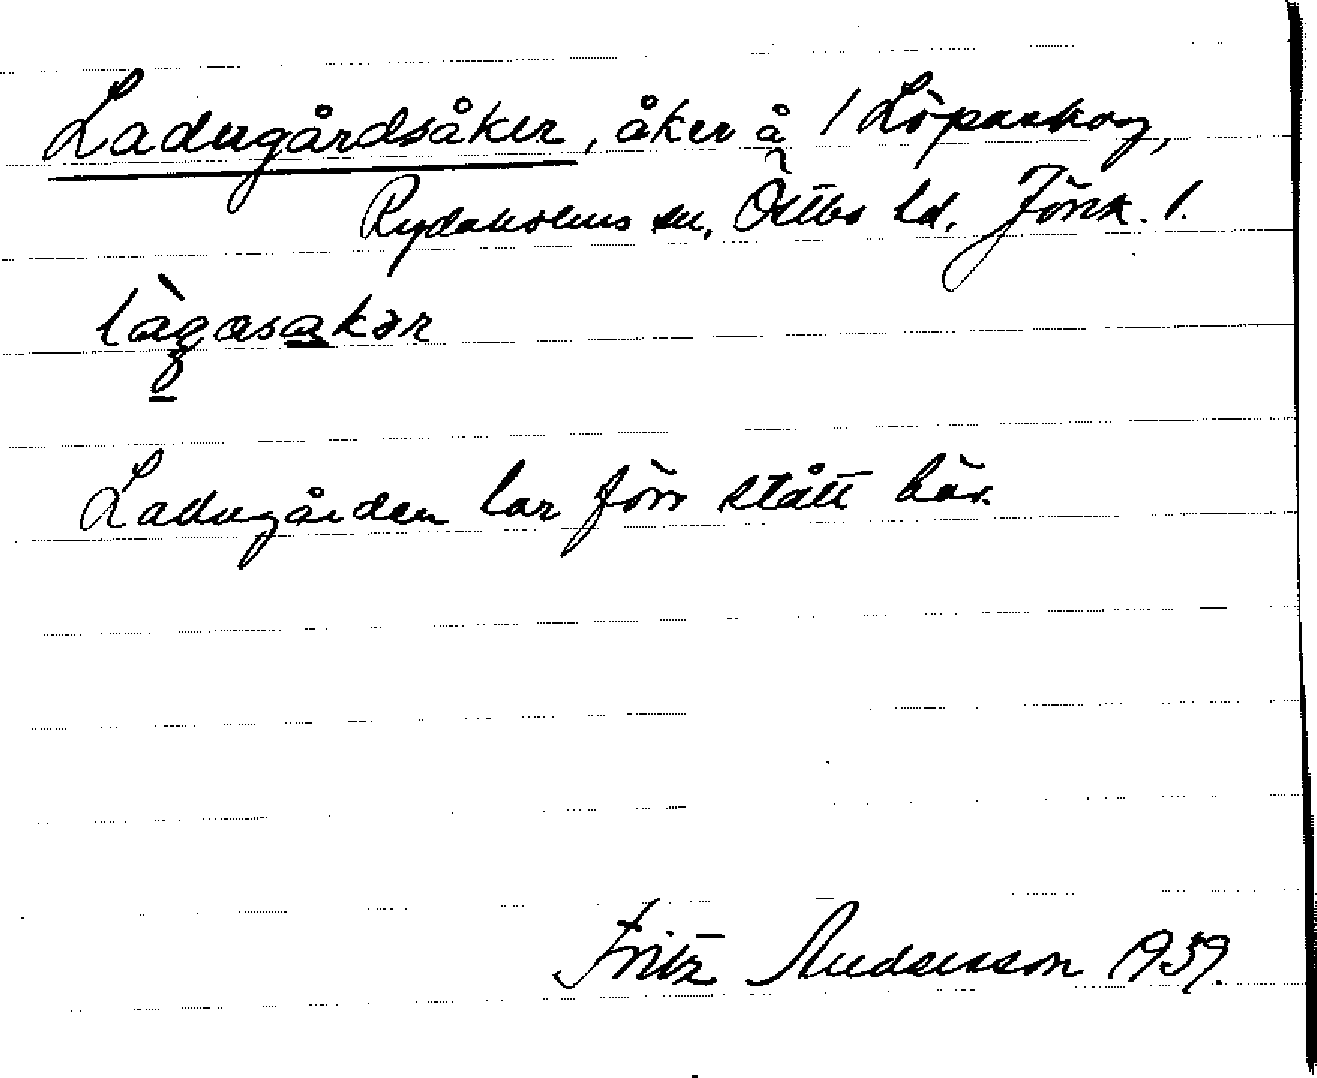 Ladugårdsåker, åker å 1 Löpaskog,
Rydaholms sn, Östbo hd. Jönk. l.
làgasakər
Ladugården har förr stått här.
Fritz Andersson 1939.